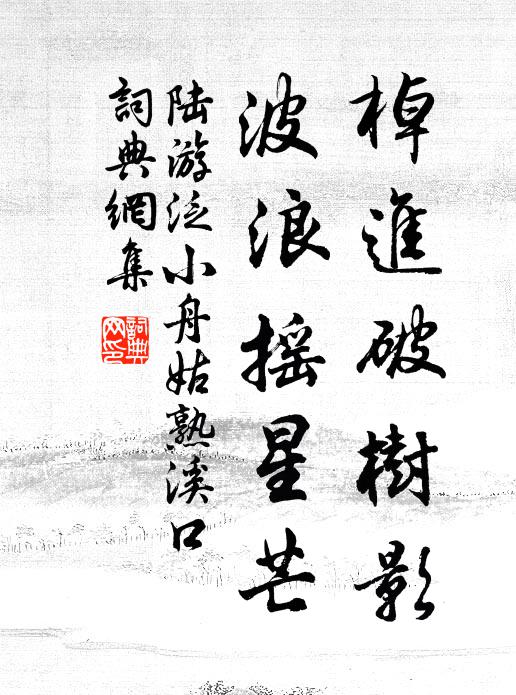 棹進破樹影
波浪摇星芒
陆游泛小舟姑熟溪口
詞典網集
詞典网印